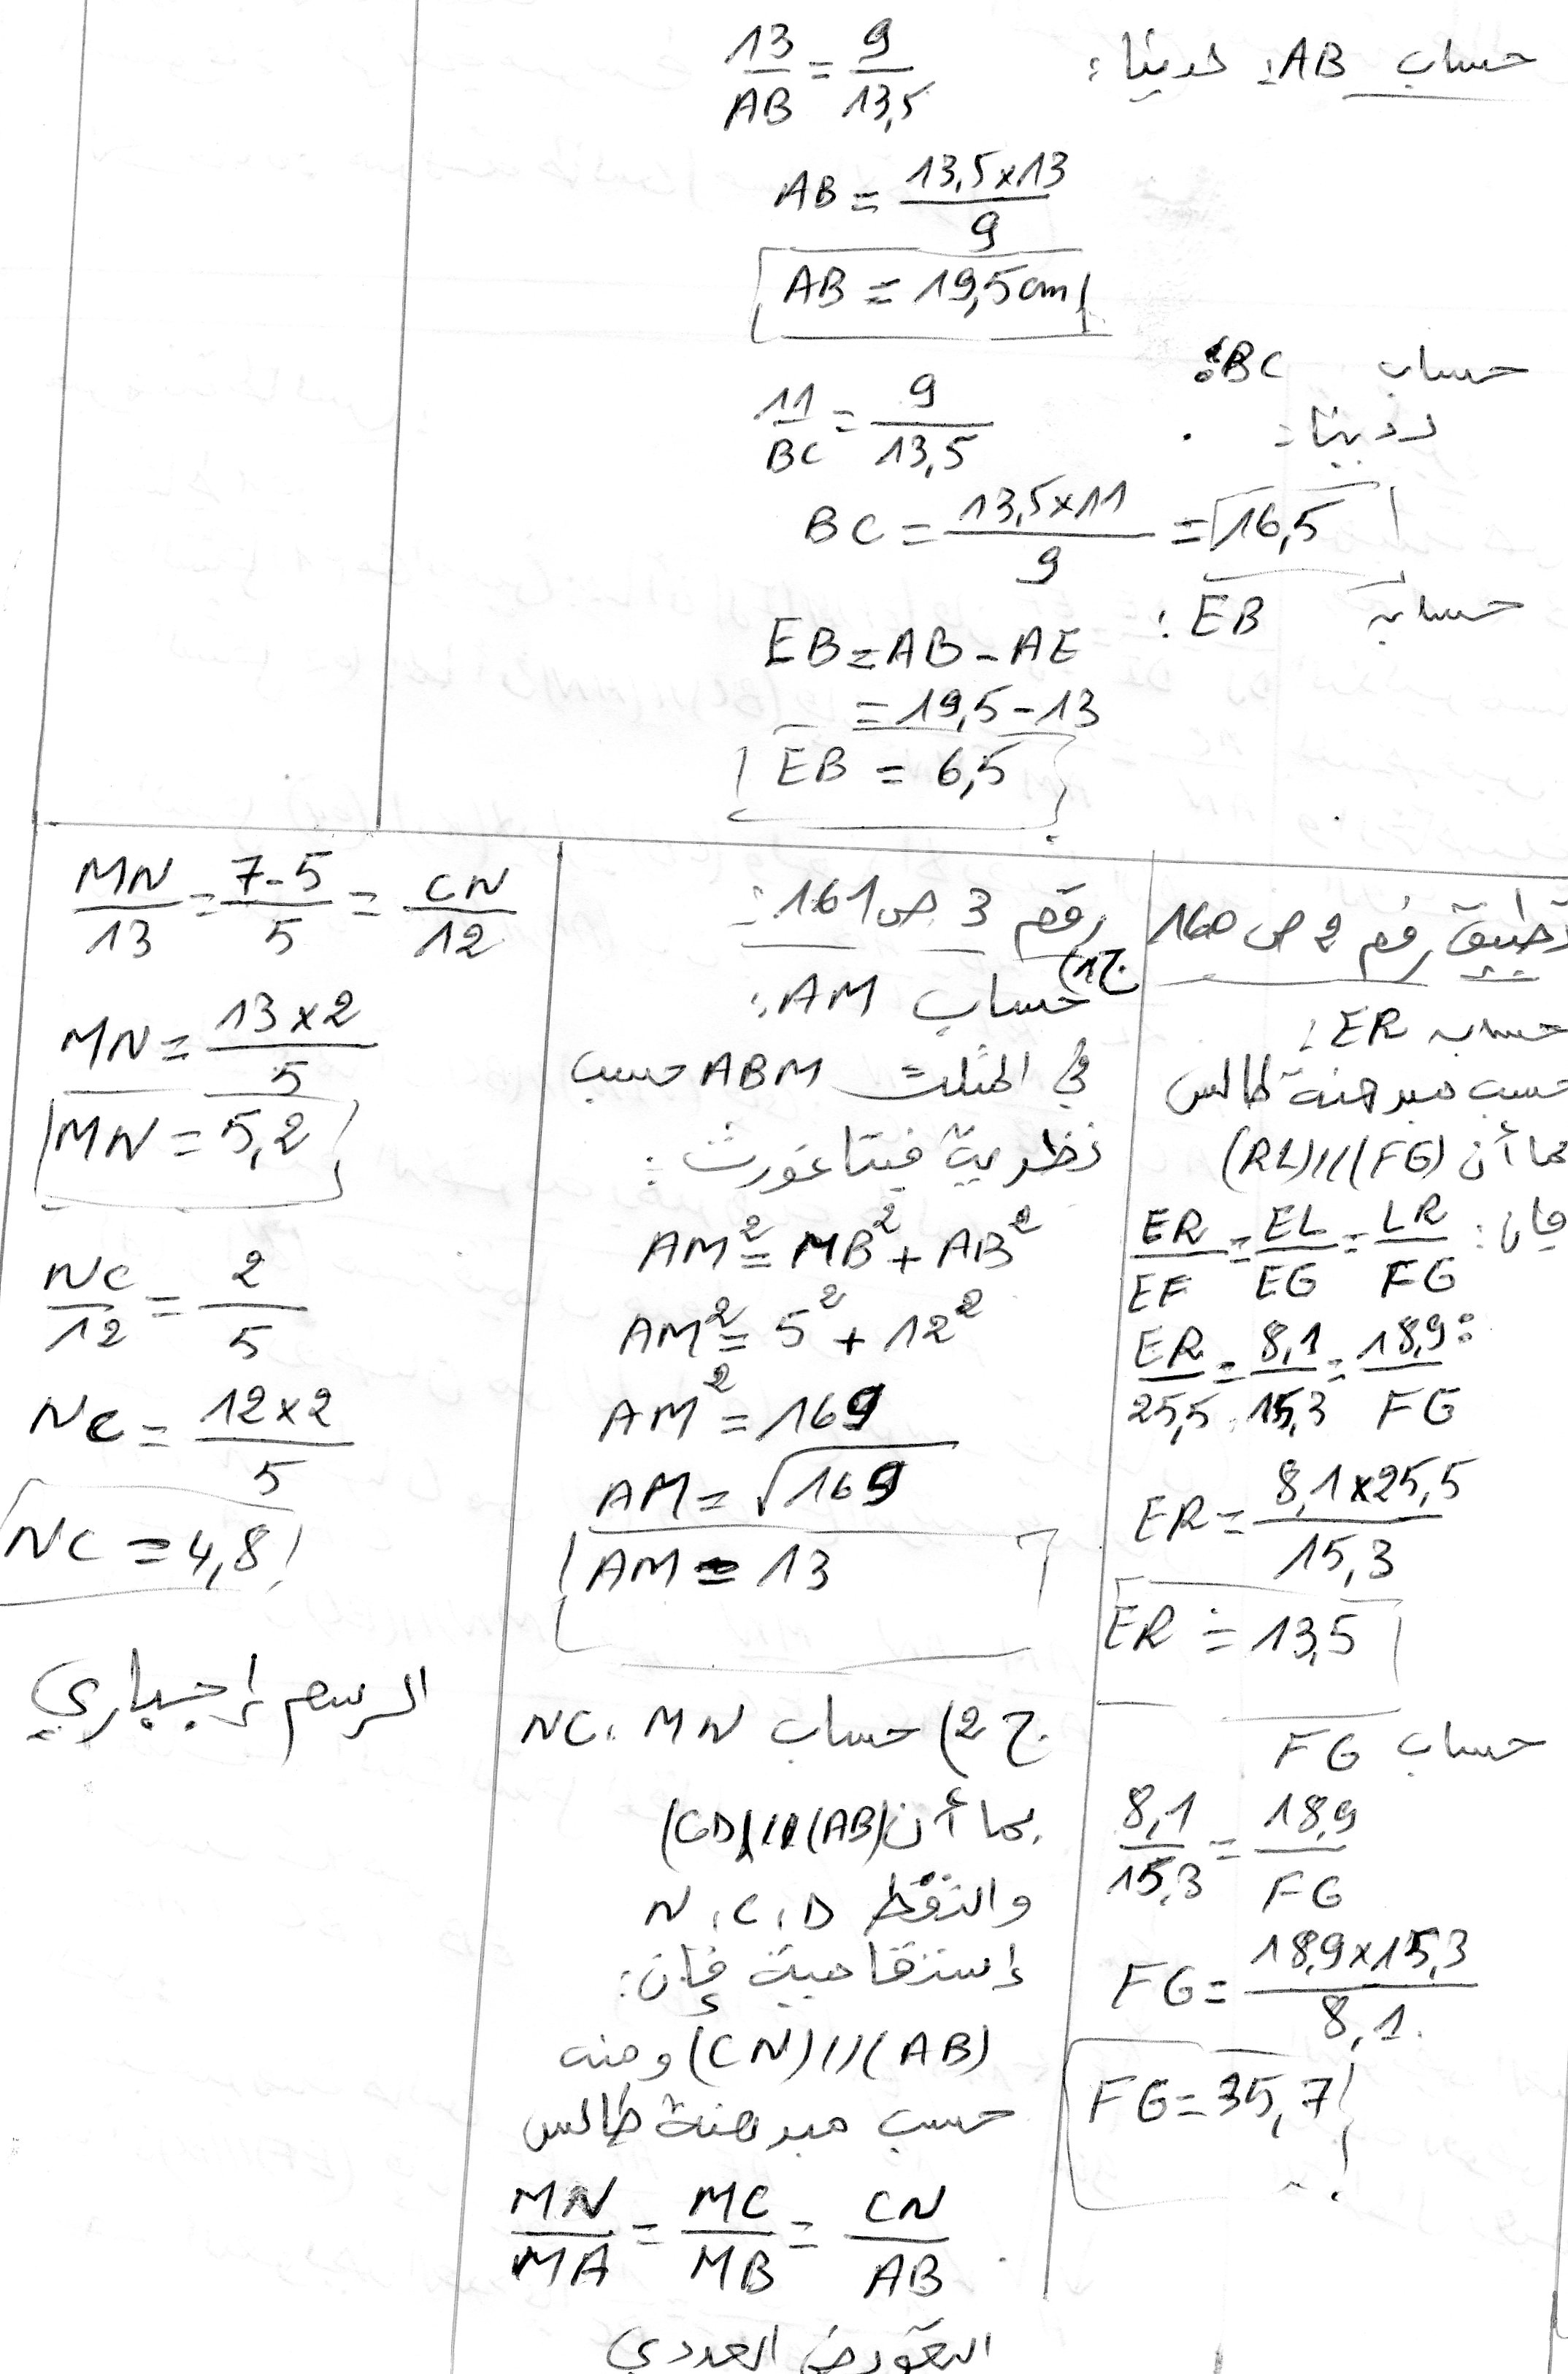 حساب AB: لدينا:
13/AB = 9/13,5
AB = 13,5×13/9
AB = 19,5cm
حساب BC:
لدينا:
11/BC = 9/13,5
BC = 13,5×11/9 = 16,5
حساب EB:
EB = AB - AE
= 19,5 - 13
EB = 6,5
تطبيق رقم 2 ص 160
حساب ER:
حسب مبرهنة طالس
بما أن (RL)//(FG)
فإن: ER/EF = EL/EG = LR/FG
ER/25,5 = 8,1/15,3 = 18,9/FG
ER = 8,1×25,5/15,3
ER = 13,5
حساب FG
8,1/15,3 = 18,9/FG
FG = 18,9×15,3/8,1
FG = 35,7
رقم 3 ص 161:
ج1) حساب AM:
في المثلث ABM حسب
نظرية فيتاغورث:
AM² = MB² + AB²
AM² = 5² + 12²
AM² = 169
AM = √169
AM = 13
ج2) حساب MN، NC
بما أن (CD)//(AB)
والنقط N، C، D
إستقامية فإن:
(CN)//(AB) ومنه
حسب مبرهنة طالس
MN/MA = MC/MB = CN/AB
التعويض العددي
MN/13 = 7-5/5 = CN/12
MN = 13×2/5
MN = 5,2
NC/12 = 2/5
NC = 12×2/5
NC = 4,8
الرسم إجباري